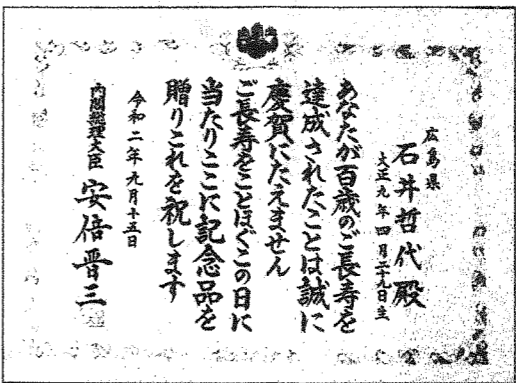 広島県
石井哲代殿
大正九年四月二十九日生
あなたが百歳のご長寿を
達成されたことは誠に
慶賀にたえません
ご長寿をことほぐこの日に
当たりここに記念品を
贈りこれを祝します
令和二年九月十五日
内閣総理大臣 安倍晋三